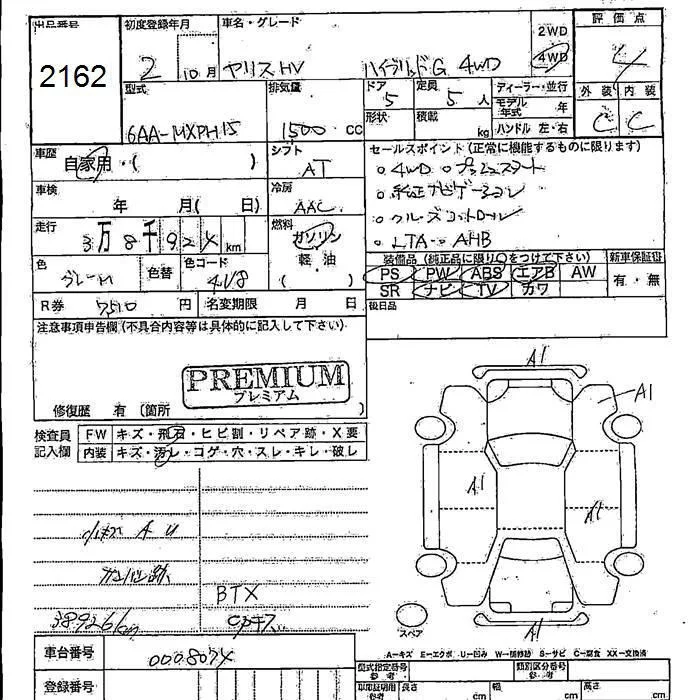 出品番号 初度登録年月 車名・グレード 2WD 評価点
2162 2 10月 ヤリスHV ハイブリッドG 4WD 4WD 4
型式 排気量 ドア 定員 ディーラー・並行 外装 内装
5 5人 モデル年式 年 C C
6AA-MXPH15 1500 cc 形状 積載 kg ハンドル 左・右
車歴 シフト セールスポイント (正常に機能するものに限ります)
自家用・( ) AT 。4WD 。プッシュスタート
車検 冷房 。純正ナビゲーション
年 月( 日) AAC 。クルーズコントロール
走行 燃料 。LTA。AHB
3万8千92X km ガソリン 装備品(純正品に限り○をつけて下さい) 新車保証書
色 色替 色コード 軽油 PS PW ABS エアB AW 有・無
グレーM 4V8 ( ) SR ナビ TV カワ
R券 7510 円 名変期限 月 日 後日品
注意事項申告欄(不具合内容等は具体的に記入して下さい)
PREMIUM
プレミアム
修復歴 有 (箇所 )
検査員 FW キズ・飛石・ヒビ割・リペア跡・X要
記入欄 内装 キズ・汚レ・コゲ・穴・スレ・キレ・破レ
A1
A1
A1
A1
A1
A U
BTX
38926km
スペア
車台番号 000807X
登録番号
A=キズ E=エクボ U=凹み W=補修跡 S=サビ C=腐食 XX=交換済
型式指定番号 参考 類別区分番号 参考
車庫証明用 参考 長さ cm 幅 cm 高さ cm